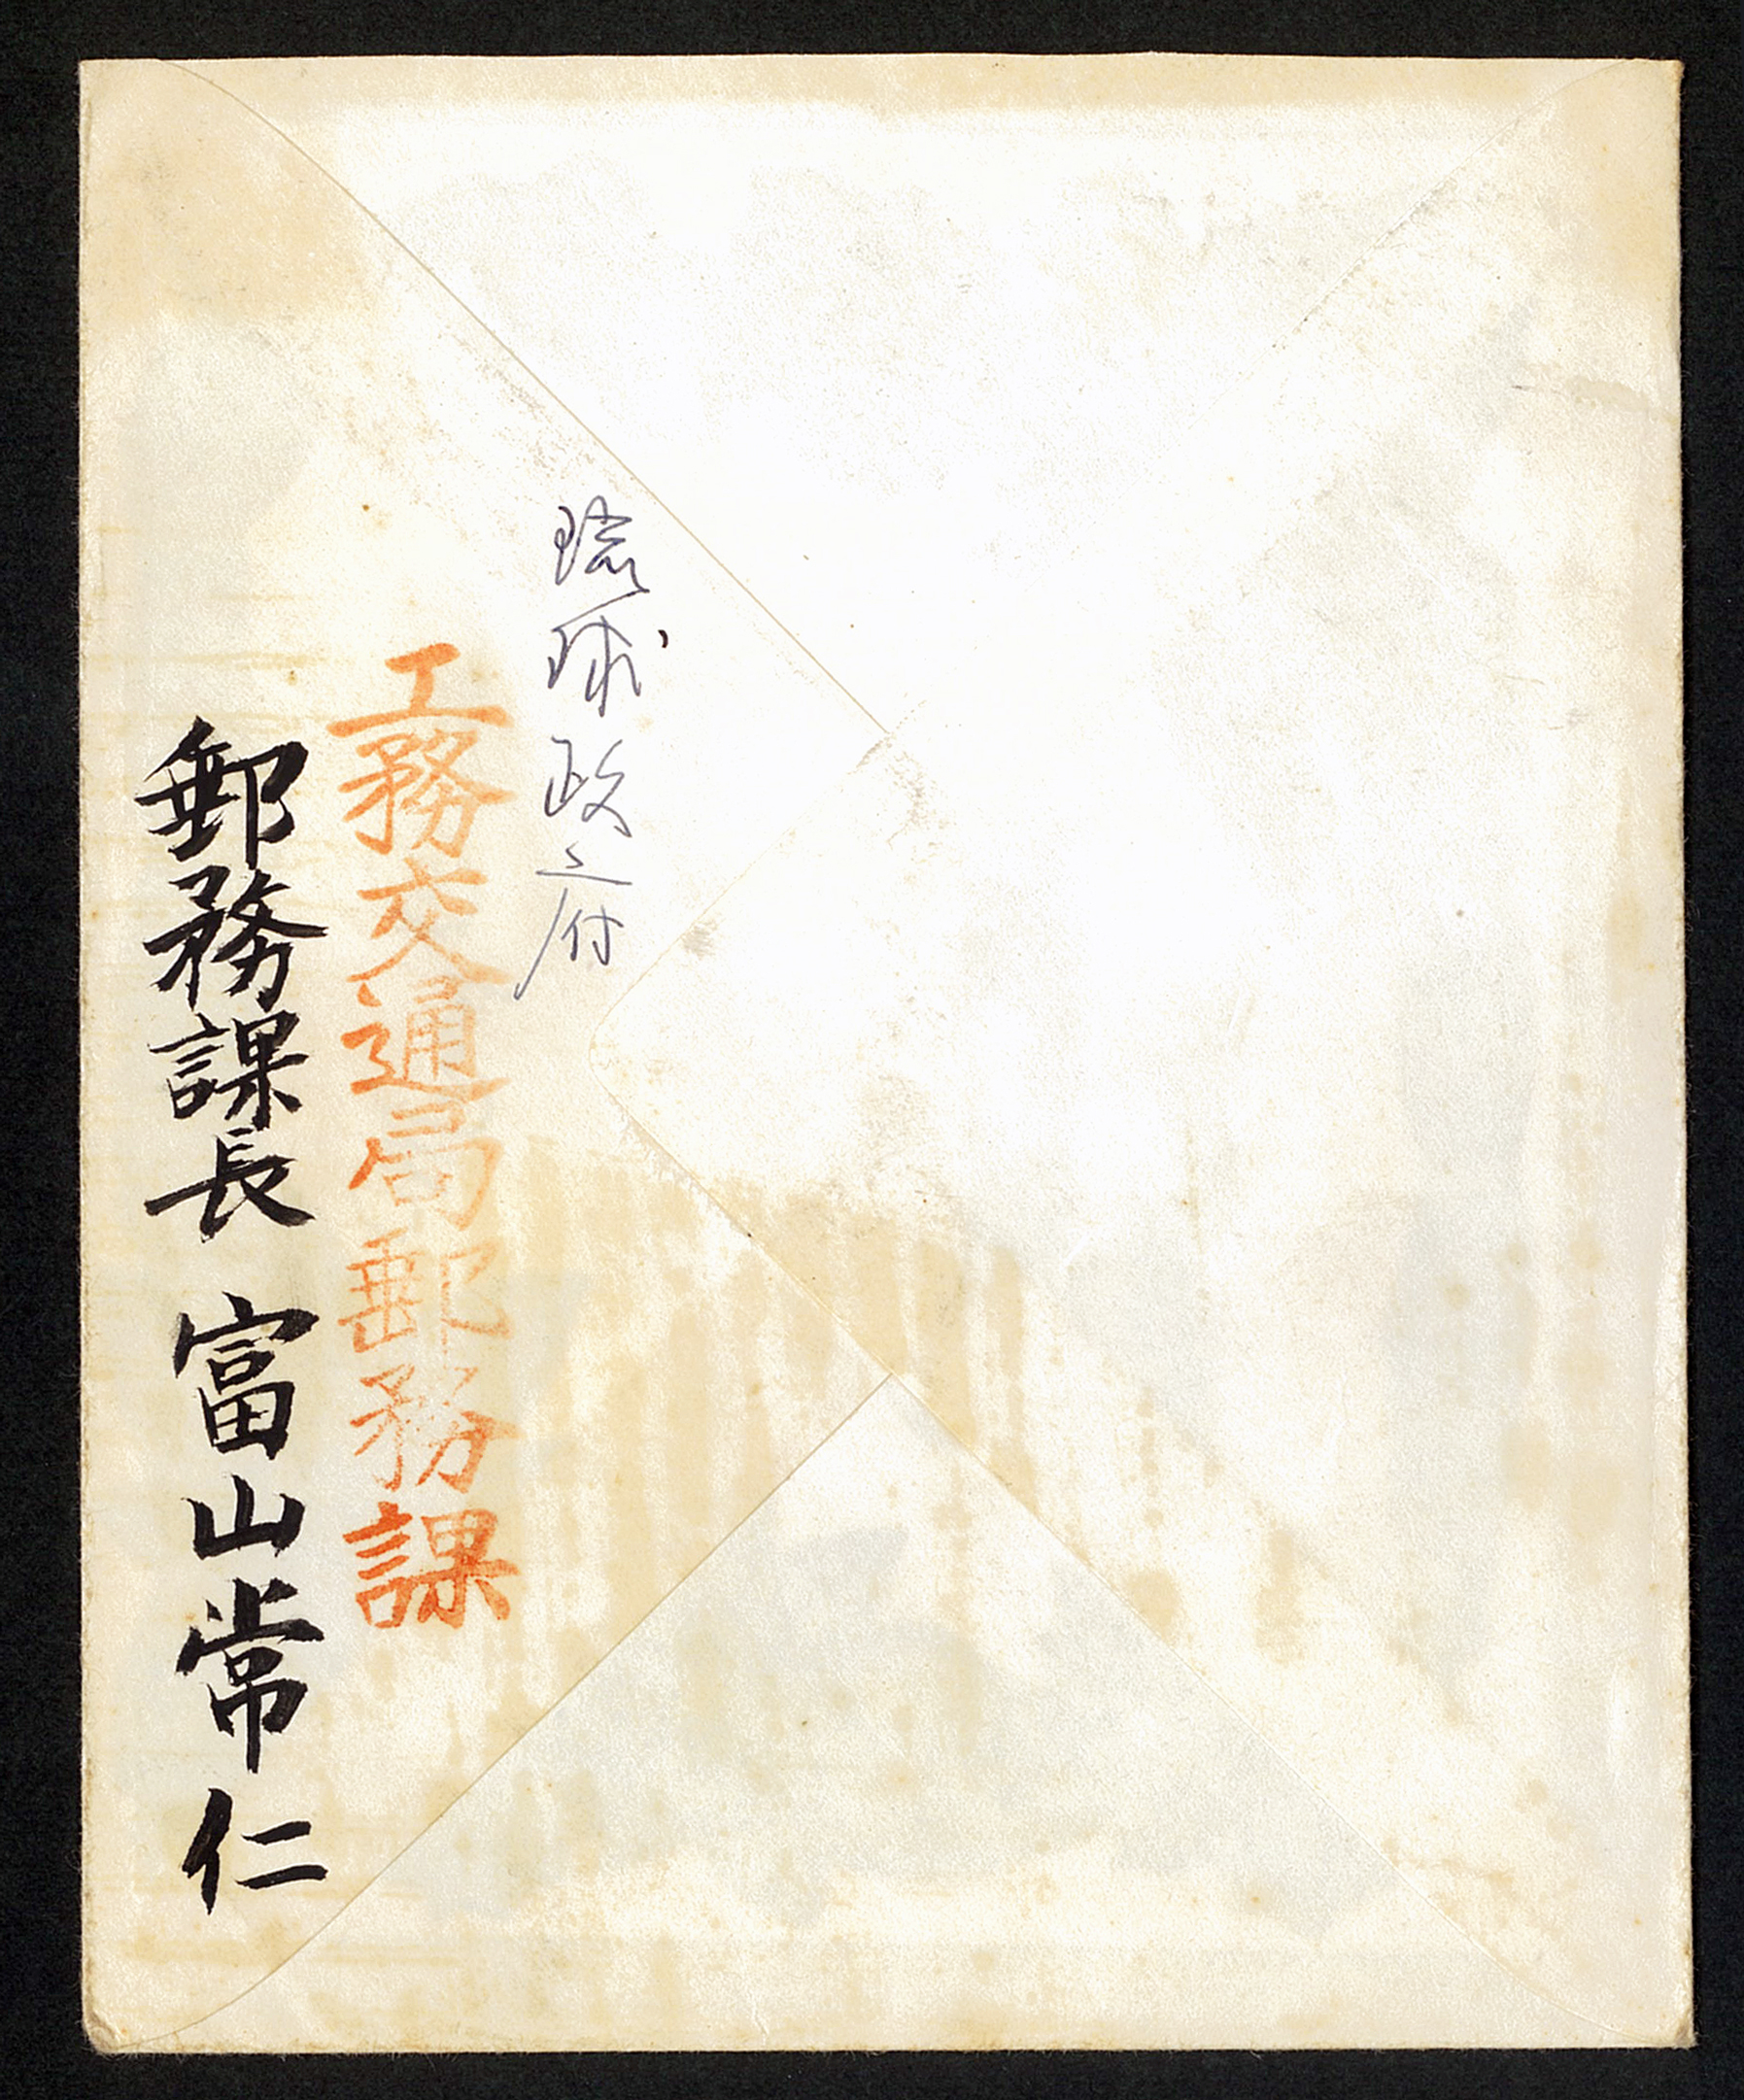 琉球政府
工務交通局郵務課
郵務課長 富山常仁